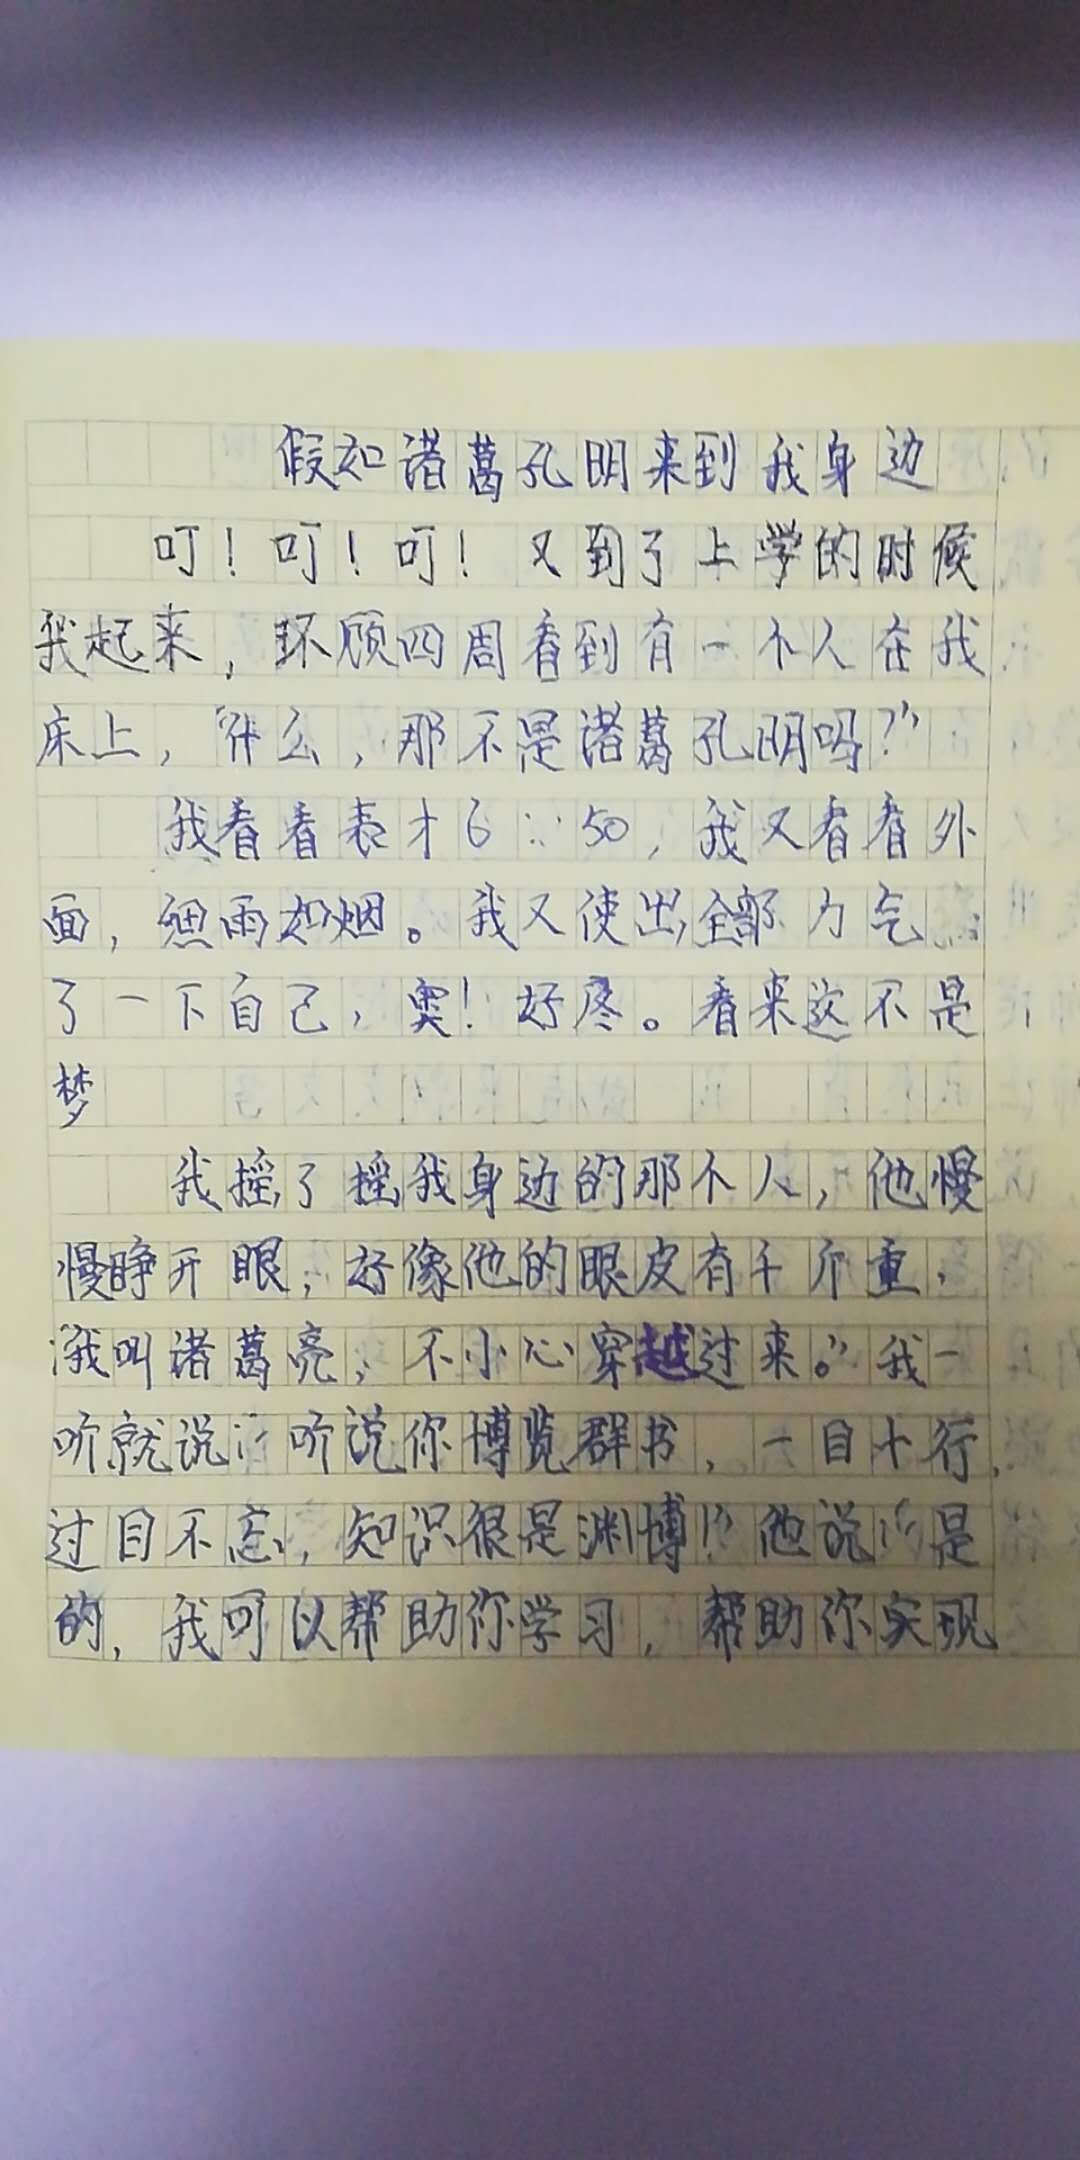 假如诸葛孔明来到我身边
叮！叮！叮！又到了上学的时候
我起来，环顾四周看到有一个人在我
床上，“什么，那不是诸葛孔明吗？”
我看看表才6：50，我又看看外
面，细雨如烟。我又使出全部力气
了一下自己，奥！好疼。看来这不是
梦
我摇了摇我身边的那个人，他慢
慢睁开眼，好像他的眼皮有千斤重，
“我叫诸葛亮，不小心穿越过来。”我一
听就说：“听说你博览群书，一目十行，
过目不忘，知识很是渊博！”他说：“是
的，我可以帮助你学习，帮助你实现